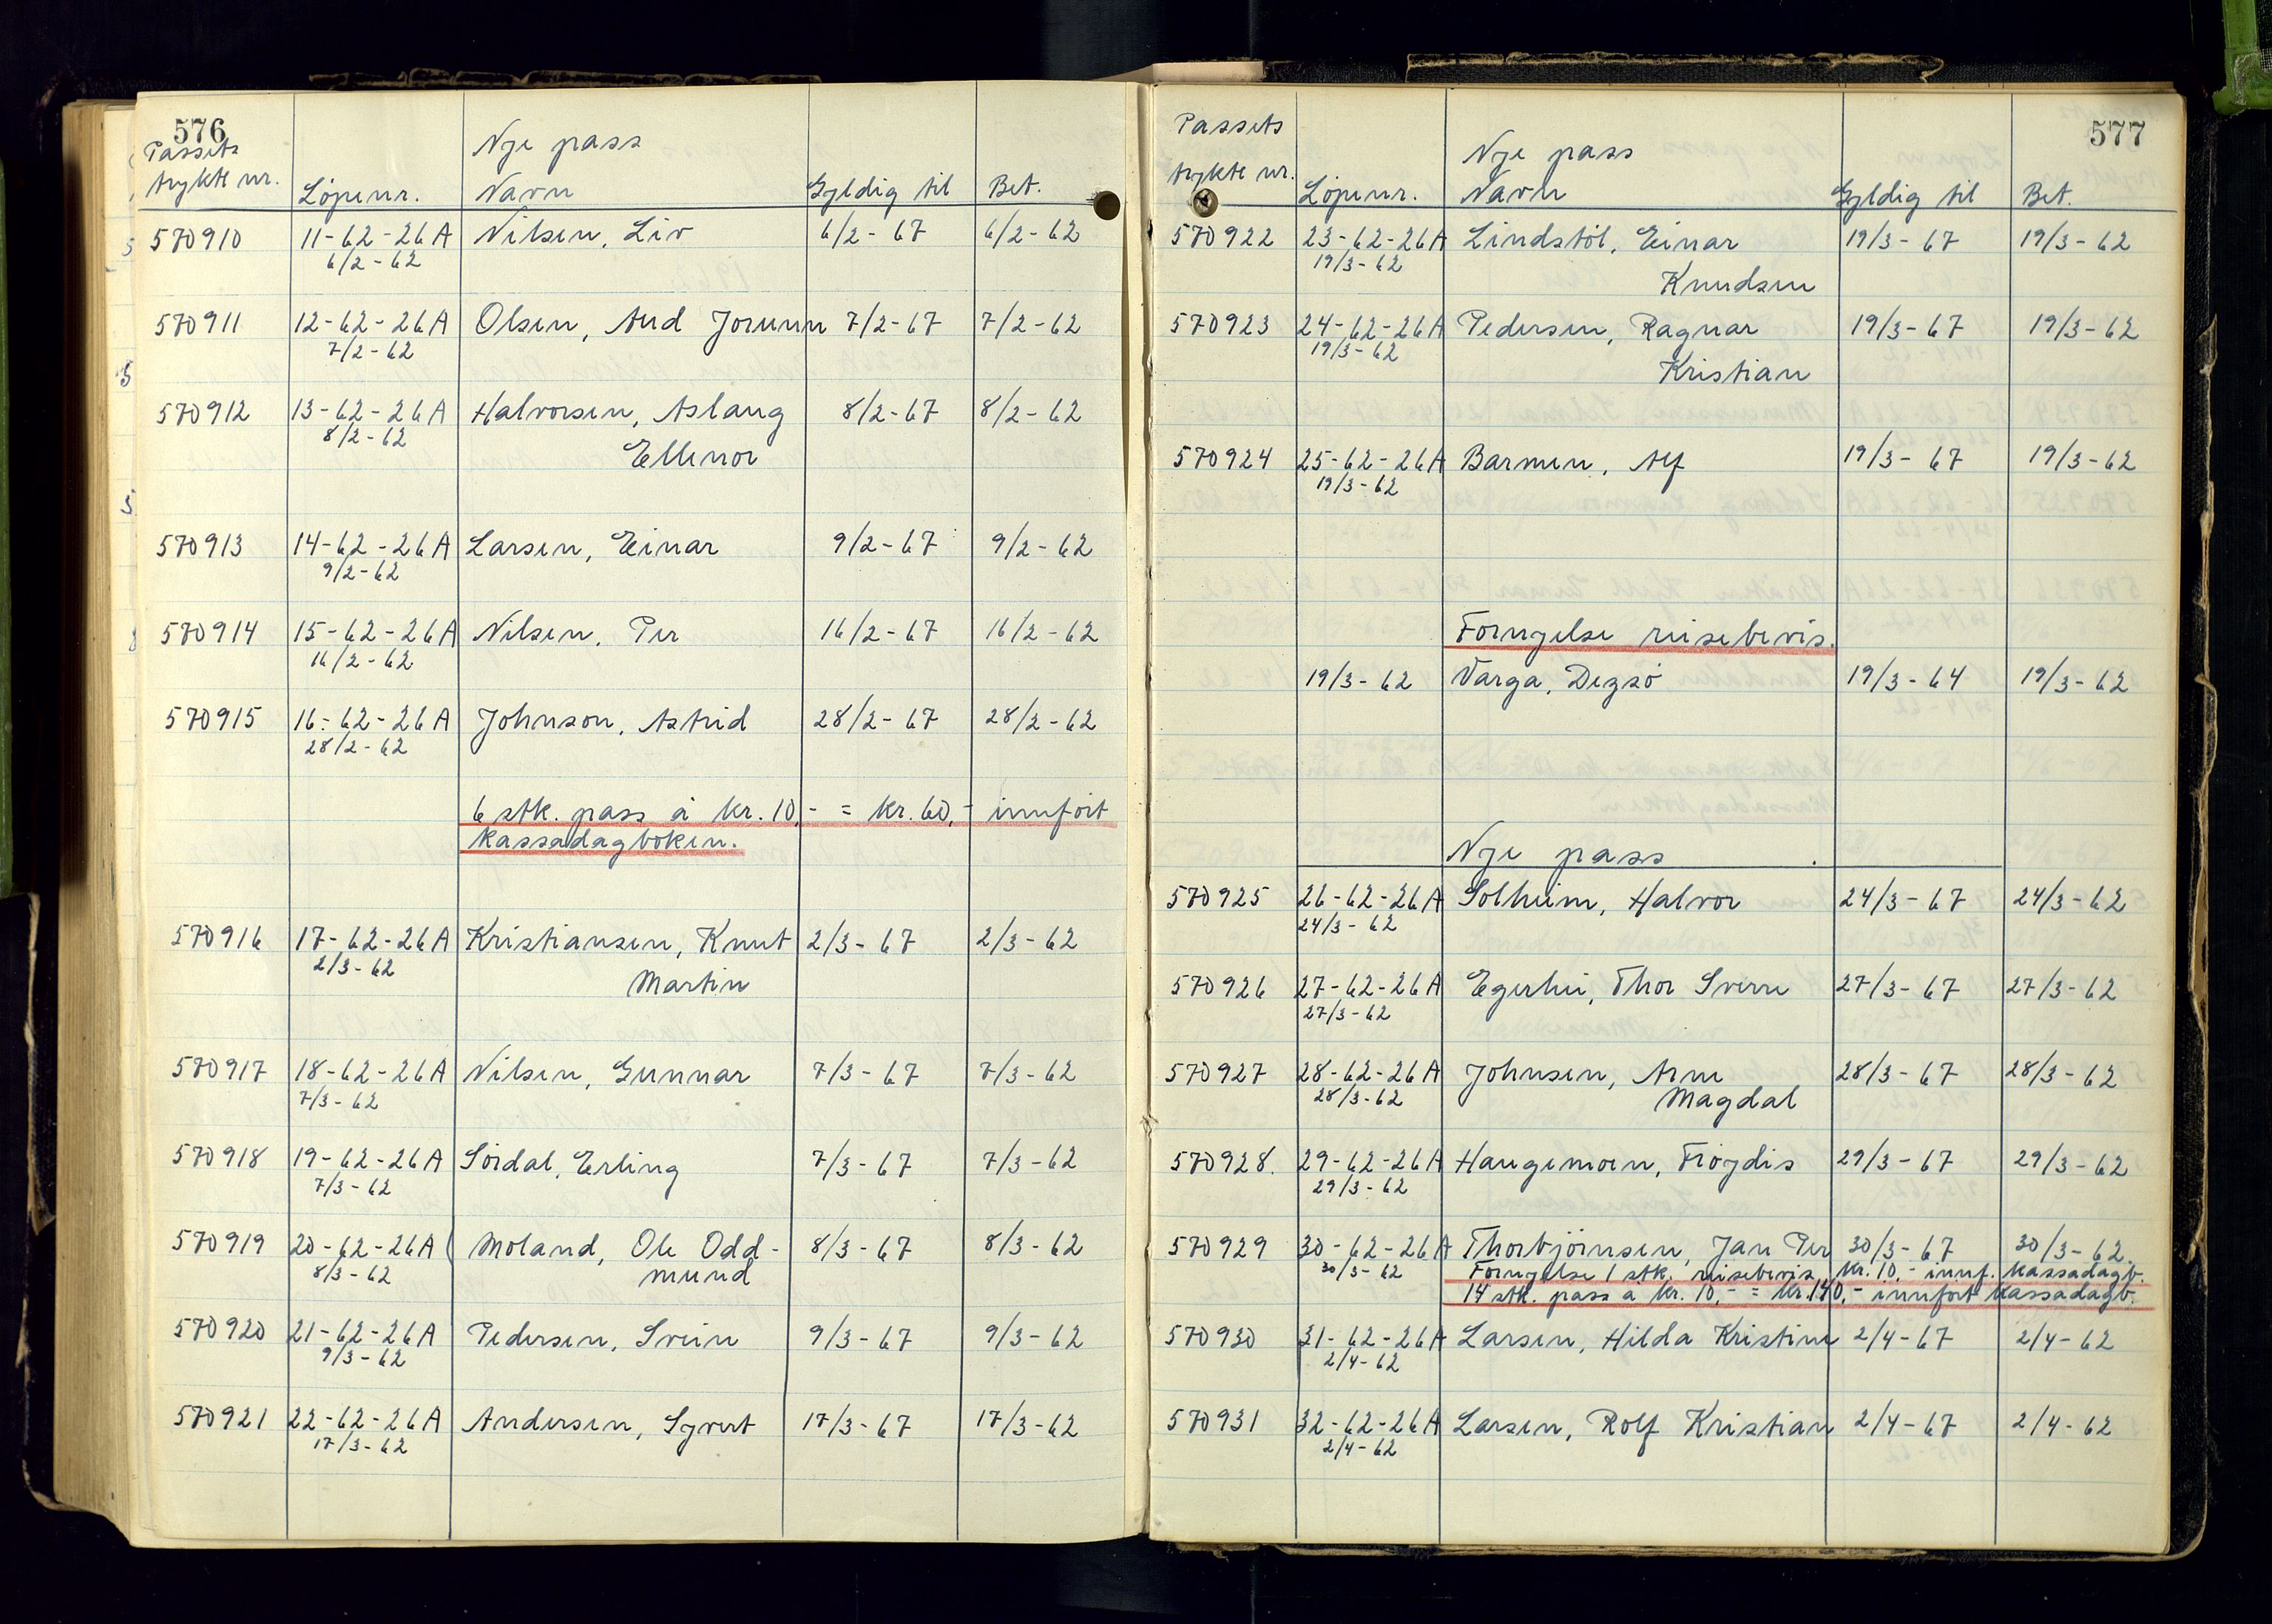 576
Passets
trykte nr.
Nye pass
Löpenr. Navn Gyldig til Bet.
570910 11-62-26A Nilsen, Liv 6/2-67 6/2-62
6/2-62
570911 12-62-26A Olsen, Aud Jorunn 7/2-67 7/2-62
7/2-62
570912 13-62-26A Halvorsen, Aslaug 8/2-67 8/2-62
8/2-62
Ellenor
570913 14-62-26A Larsen, Einar 9/2-67 9/2-62
9/2-62
570914 15-62-26A Nilsen, Per 16/2-67 16/2-62
16/2-62
570915 16-62-26A Johnson, Astrid 28/2-67 28/2-62
28/2-62
6 stk. pass á kr. 10,- = kr. 60,- innfört
kassadagboken.
570916 17-62-26A Kristiansen, Knut 2/3-67 2/3-62
2/3-62
Martin
570917 18-62-26A Nilsen, Gunnar 7/3-67 7/3-62
7/3-62
570918 19-62-26A Sördal, Erling 7/3-67 7/3-62
7/3-62
570919 20-62-26A Moland, Ole Odd- 8/3-67 8/3-62
8/3-62 mund
570920 21-62-26A Pedersen, Svein 9/3-67 9/3-62
9/3-62
570921 22-62-26A Andersen, Syvert 17/3-67 17/3-62
17/3-62
577
Passets
trykte nr.
Nye pass
Löpenr. Navn Gyldig til Bet.
570922 23-62-26A Lindstöl, Einar 19/3-67 19/3-62
19/3-62
Knudsen
570923 24-62-26A Pedersen, Ragnar 19/3-67 19/3-62
19/3-62
Kristian
570924 25-62-26A Barmen, Alf 19/3-67 19/3-62
19/3-62
Fornyelse reisebevis.
19/3-62 Varga, Dezsö 19/3-64 19/3-62
Nye pass
570925 26-62-26A Solheim, Halvor 24/3-67 24/3-62
24/3-62
570926 27-62-26A Egerhei, Thor Sverre 27/3-67 27/3-62
27/3-62
570927 28-62-26A Johnsen, Arne 28/3-67 28/3-62
28/3-62 Magdal
570928. 29-62-26A Haugemoen, Fröydis 29/3-67 29/3-62
29/3-62
570929 30-62-26A Thorbjörnsen, Jan Per 30/3-67 30/3-62.
30/3-62 Fornyelse 1 stk. reisebevis kr. 10,- innf. kassadagb.
14 stk. pass á kr. 10,- = kr. 140,- innfört kassadagb.
570930 31-62-26A Larsen, Hilda Kristine 2/4-67 2/4-62
2/4-62
570931 32-62-26A Larsen, Rolf Kristian 2/4-67 2/4-62
2/4-62